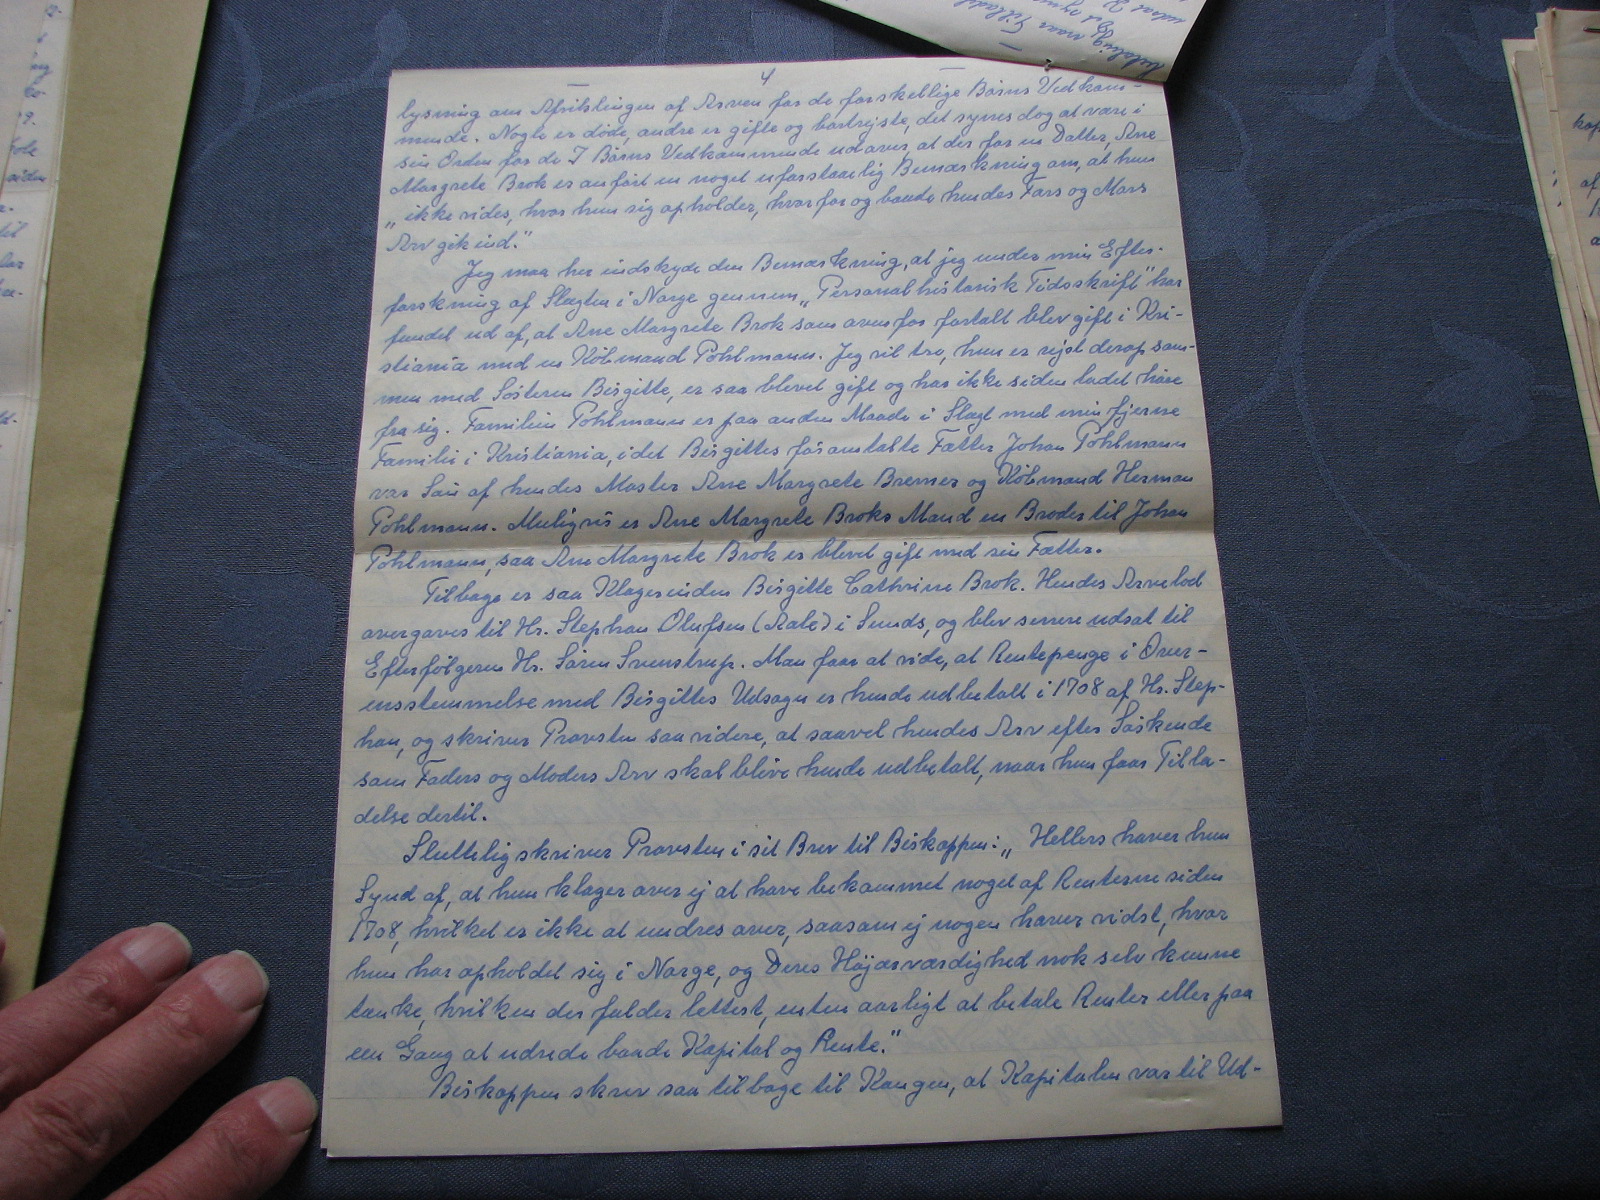 4
lysning om Afviklingen af Arven for de forskellige Børns Vedkom-
mende. Nogle er døde, andre er gifte og bortrejste, det synes dog at være i
sin Orden for de 7 Børns Vedkommende udover, at der for en Datter, Ane
Margrete Brok er anført en noget uforstaaelig Bemærkning om, at hun
„ikke vides, hvor hun sig opholder, hvorfor og baade hendes Fars og Mors
Arv gik ind."
Jeg maa her indskyde den Bemærkning, at jeg under min Efter-
forskning af Slægten i Norge gennem „Personalhistorisk Tidsskrift" har
fundet ud af, at Ane Margrete Brok som ovenfor fortalt blev gift i Kri-
stiania med en Købmand Pohlmann. Jeg vil tro, hun er rejst derop sam-
men med Søsteren Birgitte, er saa blevet gift og har ikke siden ladet høre
fra sig. Familien Pohlmann er paa anden Maade i Slægt med min fjerne
Familie i Kristiania, idet Birgittes foromtalte Fætter Johan Pohlmann
var Søn af hendes Moster Ane Margrete Bremer og Købmand Herman
Pohlmann. Muligvis er Ane Margrete Broks Mand en Broder til Johan
Pohlmann, saa Ane Margrete Brok er blevet gift med sin Fætter.
Tilbage er saa Klagerinden Birgitte Cathrine Brok. Hendes Arvelod
overgaves til Hr. Stephan Olufsen (Aale) i Sunds, og blev senere udsat til
Efterfølgeren Hr. Søren Svenstrup. Man faar at vide, at Rentepenge i Over-
ensstemmelse med Birgittes Udsagn er hende udbetalt i 1708 af Hr. Step-
han, og skriver Provsten saa videre, at saavel hendes Arv efter Søskende
som Faders og Moders Arv skal blive hende udbetalt, naar hun faar Tilla-
delse dertil.
Sluttelig skriver Provsten i sit Brev til Biskoppen: „Hellers haver hun
Synd af, at hun klager over ej at have bekommet noget af Renterne siden
1708, hvilket er ikke at undres over, saasom ej nogen haver vidst, hvor
hun har opholdet sig i Norge, og Deres Højærværdighed nok selv kunne
tænke, hvilken der falder lettest, enten aarligt at betale Renter eller paa
een Gang at udrede baade Kapital og Rente."
Biskoppen skrev saa tilbage til Kongen, at Kapitalen var til Ud-